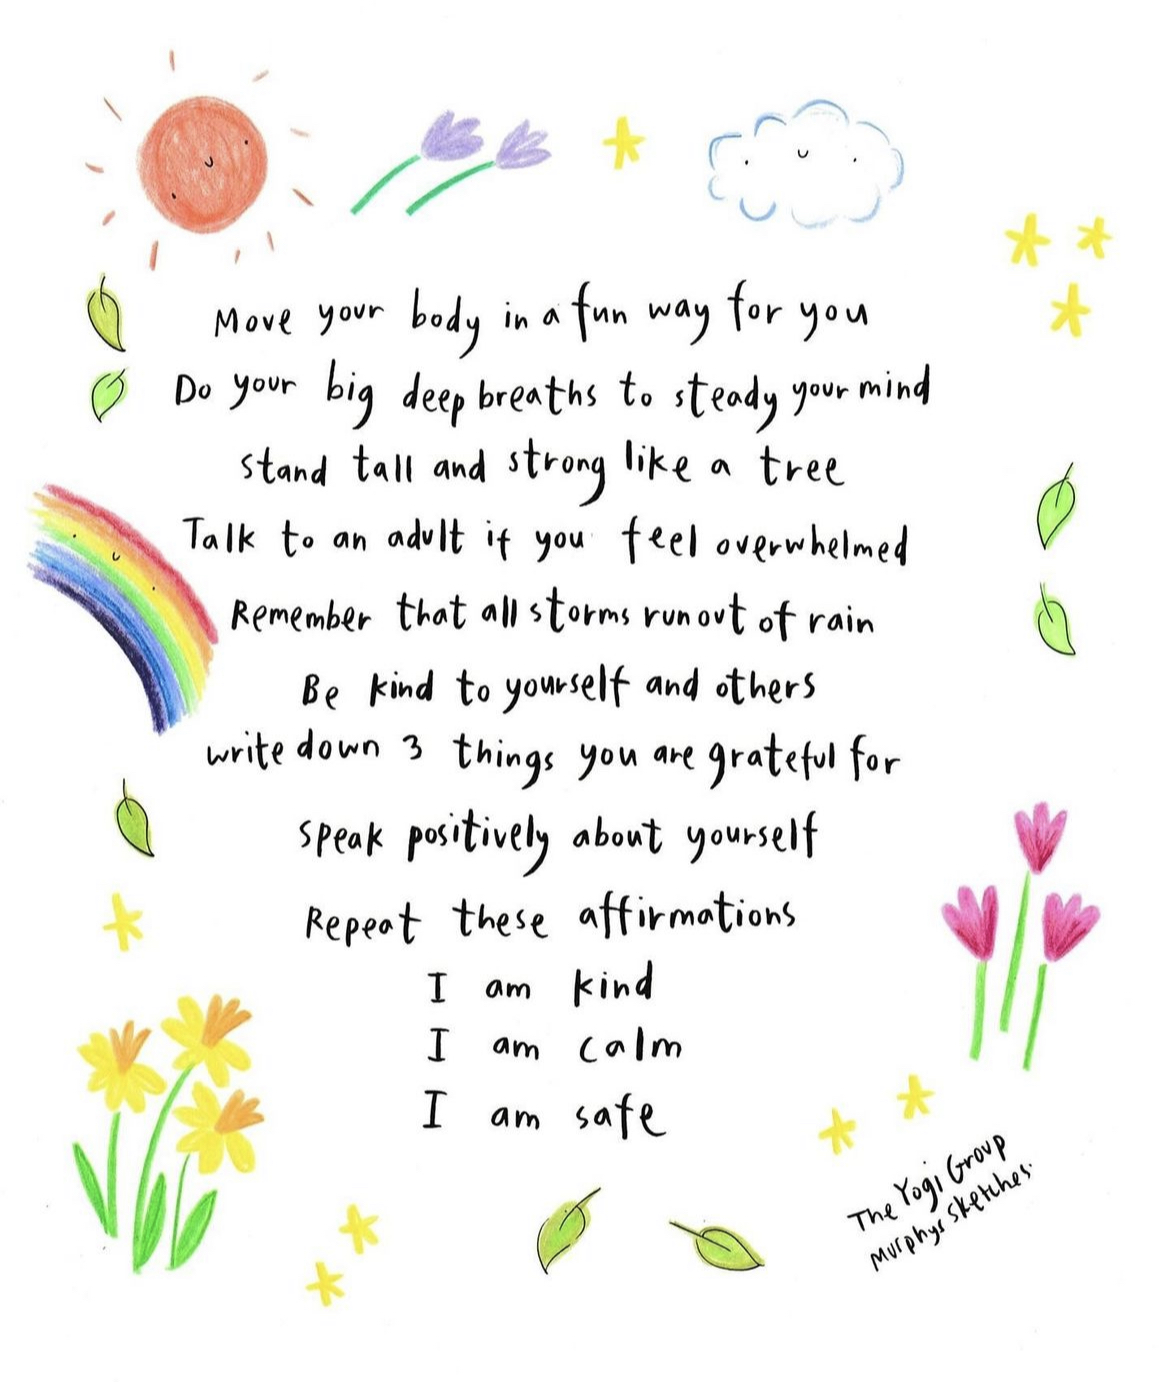 Move your body in a fun way for you
Do your big deep breaths to steady your mind
stand tall and strong like a tree
Talk to an adult if you feel overwhelmed
Remember that all storms run out of rain
Be kind to yourself and others
write down 3 things you are grateful for
speak positively about yourself
Repeat these affirmations
I am kind
I am calm
I am safe
The Yogi Group
Murphys Sketches.